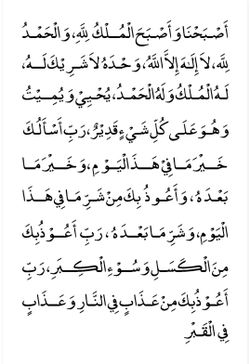 أَصْبَحْنَا وَأَصْبَحَ الْمُلْكُ لِلَّهِ، وَالْحَمْدُ
لِلَّهِ، لَا إِلَهَ إِلَّا اللَّهُ، وَحْدَهُ لَا شَرِيْكَ لَهُ،
لَهُ الْمُلْكُ وَلَهُ الْحَمْدُ، يُحْيِيْ وَيُمِيْتُ
وَهُوَ عَلَى كُلِّ شَيْءٍ قَدِيْرٌ، رَبِّ أَسْأَلُكَ
خَيْرَ مَا فِيْ هَذَا الْيَوْمِ، وَخَيْرَ مَا
بَعْدَهُ، وَأَعُوذُ بِكَ مِنْ شَرِّ مَا فِيْ هَذَا
الْيَوْمِ، وَشَرِّ مَا بَعْدَهُ، رَبِّ أَعُوْذُ بِكَ
مِنَ الْكَسَلِ وَسُوْءِ الْكِبَرِ، رَبِّ
أَعُوْذُ بِكَ مِنْ عَذَابٍ فِي النَّارِ وَعَذَابٍ
فِي الْقَبْرِ